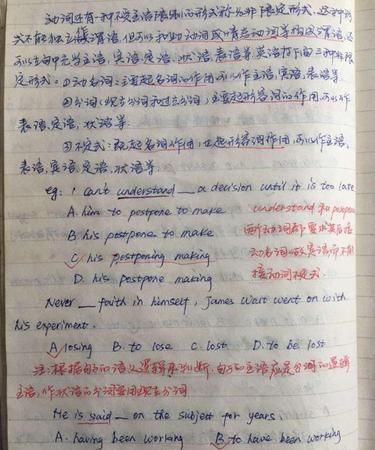 动词还有一种不受主语限制的形式称为非限定形式,这种形
式不能独立做谓语,但可以和助动词或情态动词等构成谓语,还
可以在句中充当主语,宾语,定语,状语,表语等,英语符中三种非限
定形式:①动名词:主要起名词的作用,可以作主语,宾语,表语等.
②分词(现在分词和过去分词),主要起形容词的作用,可以作
表语,定语,状语等.
③不定式:既起名词作用,也起形容词作用,可以作主语,
表语,宾语,定语,状语等.
eg: I can't understand __ a decision until it is too late
A. him to postpone to make
understand 和 postpone
B. his postpone to make
两动词都要求其后接
C. his postponing making
动名词做宾语而不能
D. his postpone making
接动词不定式.
Never __ faith in himself, James Watt went on with
his experiment.
A. losing B. to lose C. lost D. to be lost
注:根据句子的语义逻辑来判断,句子的主语应是分词的逻辑
主语,作状语的分词要用现在分词
He is said __ on the subject for years.
A. having been working B. to have been working